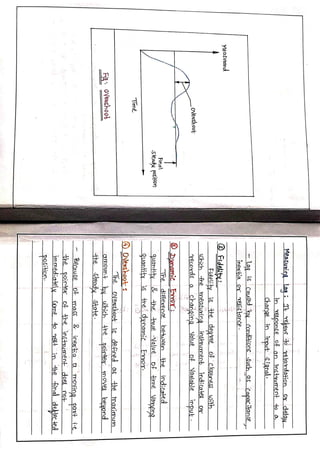 Measurand
overshoot
Final
steady position
Time
Fig: overshoot
Measuring lag: It refers to retardation or delay
in response of an instrument to a
change in input signal.
- Lag is caused by conditions such as capacitance,
inertia or resistance.
② Fidelity:
Fidelity is the degree of closeness with
which the measuring instrument indicates or
records a changing value of variable input.
③ Dynamic Error:
The difference between the indicated
quantity & the true value of time varying
quantity is the dynamic Error.
④ Overshoot:
The Overshoot is defined as the maximum
amount by which the pointer moves beyond
the steady state.
- Because of mass & inertia a moving part i.e
the pointer of the instrument does not
immediately come to rest in the final deflected
position.